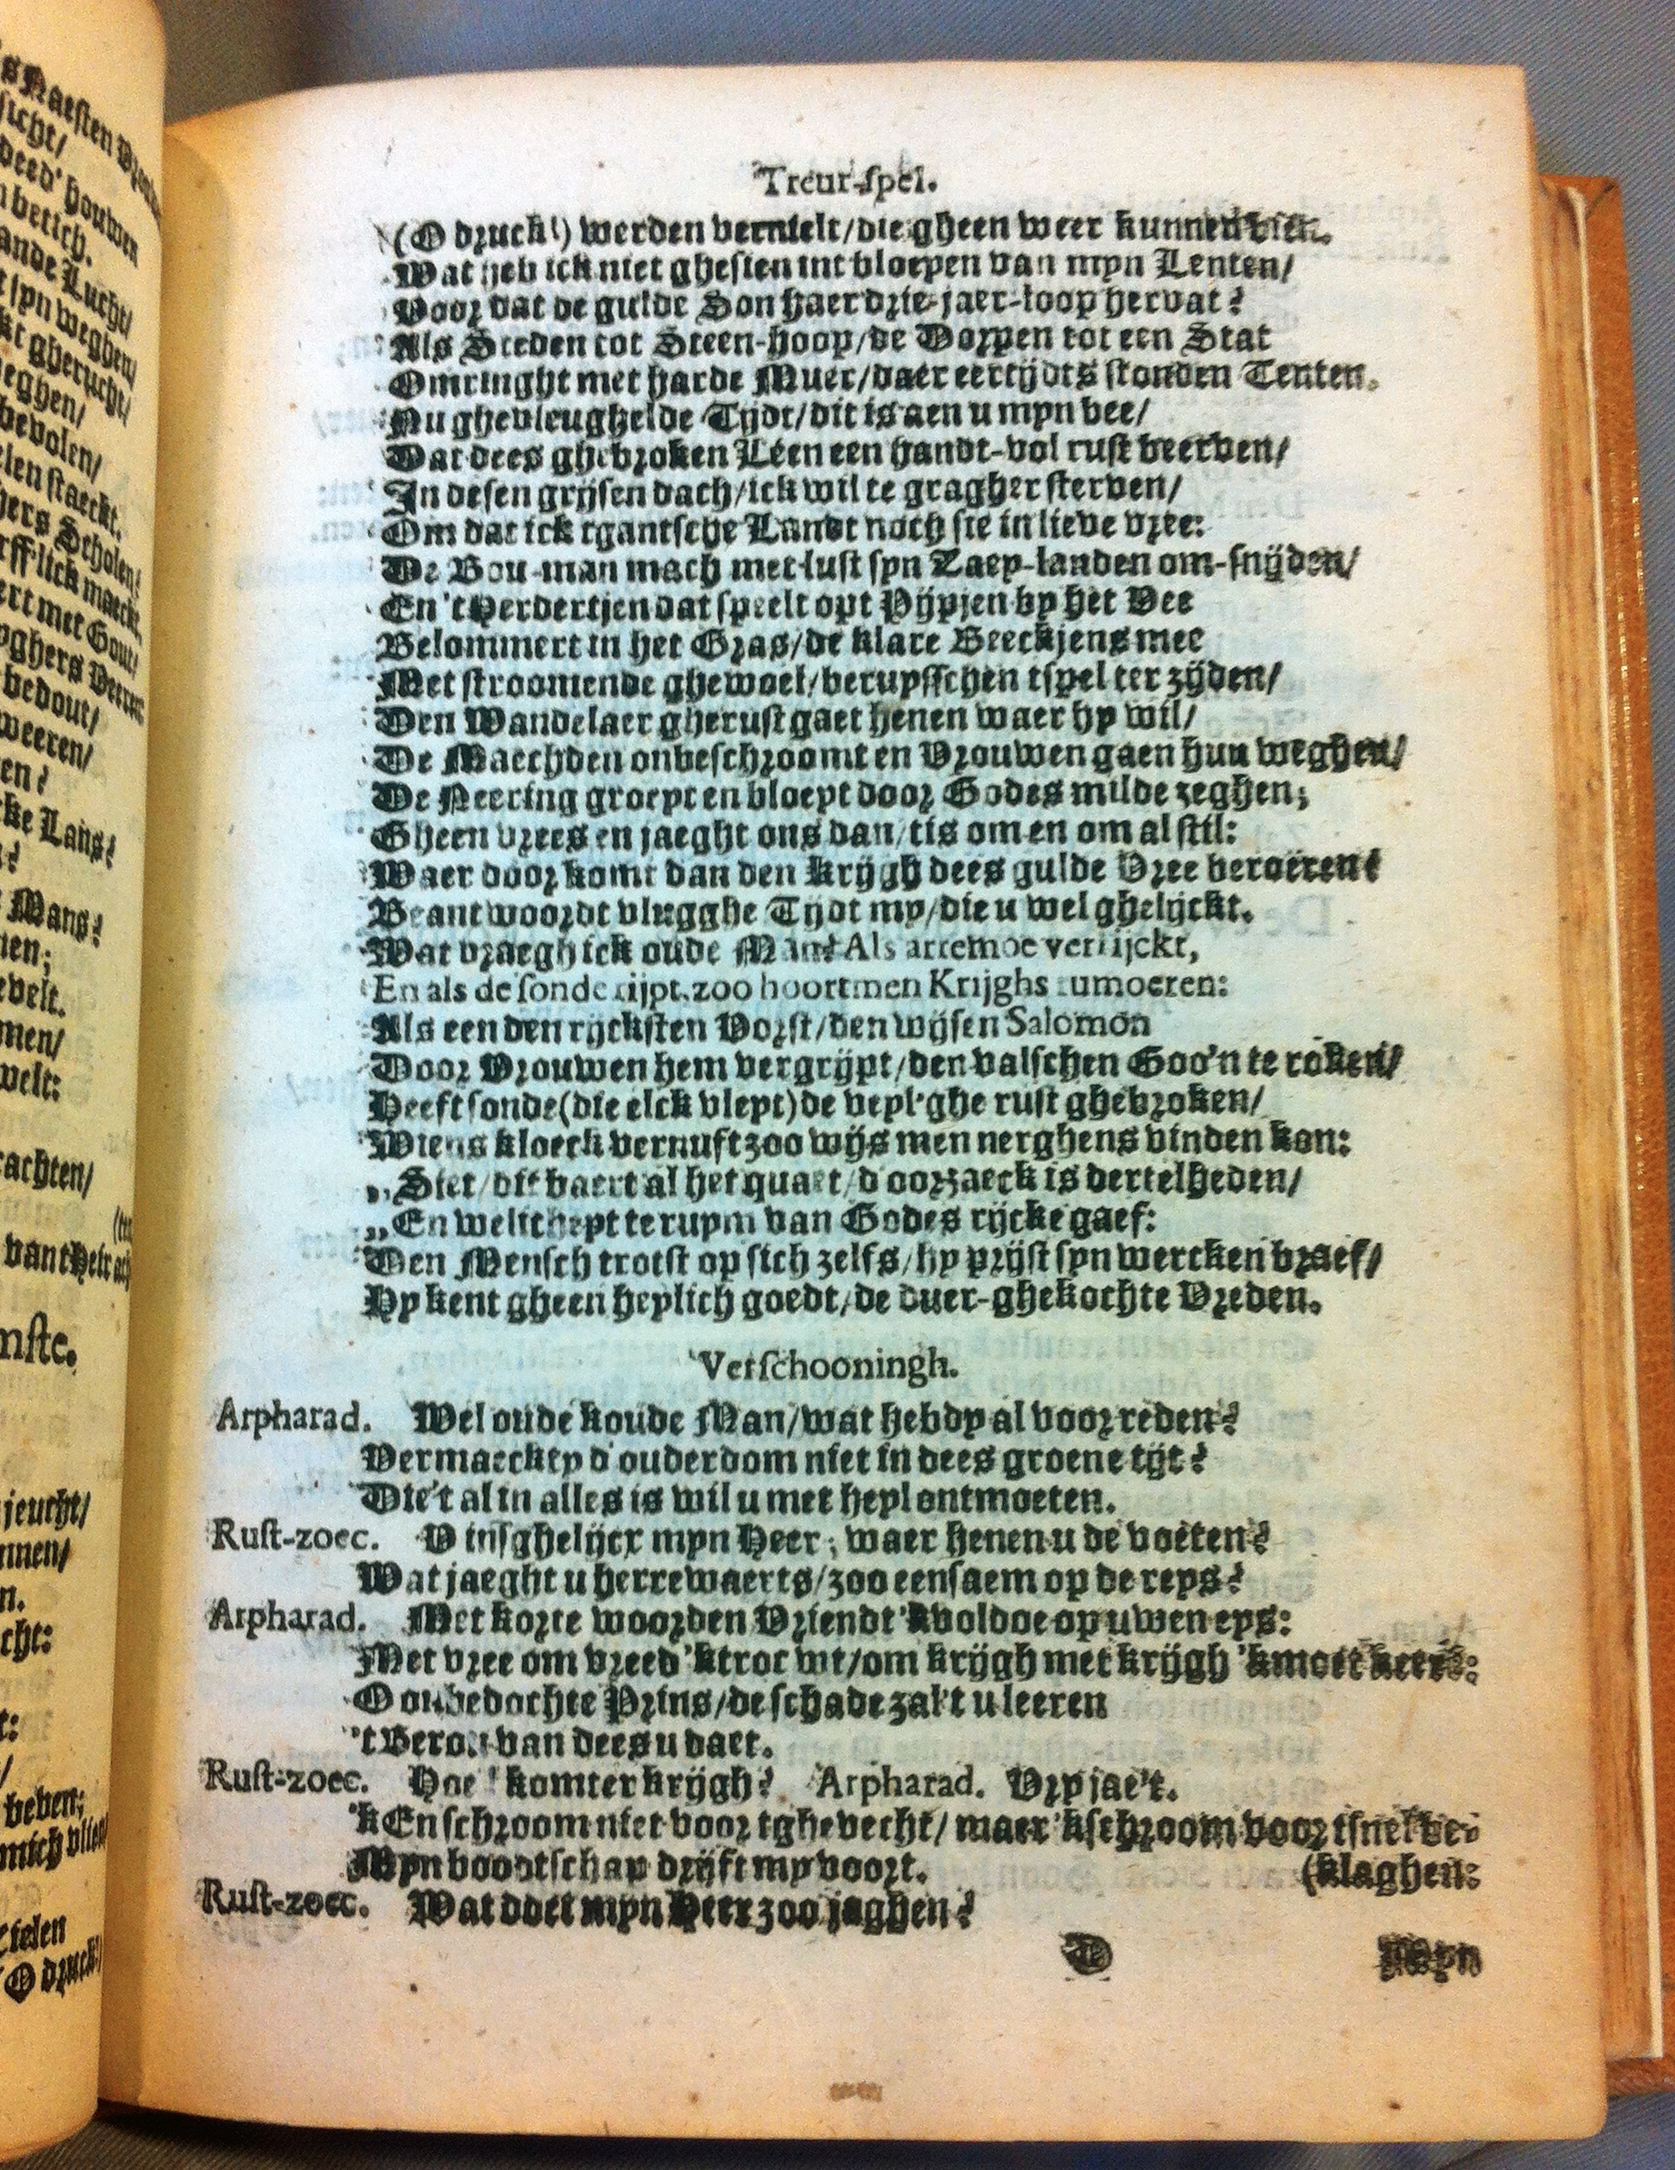 Treur-spel.
(O druck!) werden vernielt/die gheen weer kunnen
Wat heb ick niet ghesien int bloeyen van myn Lenten/
Voor dat de gulde Son haer drie-jaer-loop hervat?
Als Steden tot Steen-hoop/de Dorpen tot een Stat
Omringht met harde Muer/daer eertijdts stonden Tenten.
Nu ghevleughelde Tijdt/dit is aen u myn bee/
Dat dees ghebroken Leen een handt-vol rust beerven/
In desen grijsen dach/ick wil te gragher sterven/
Om dat ick tgantsche Landt noch sie in lieve vree:
De Bou-man mach met lust syn Zaey-landen om-snijden/
En 't Herdertjen dat speelt opt Pijpjen by het Vee
Belommert in het Gras/de klare Beeckjens mee
Met stroomende ghewoel/beruysschen tspel ter zijden/
Den Wandelaer gherust gaet henen waer hy wil/
De Maechden onbeschroomt en Vrouwen gaen hun weghen/
De Neering groeyt en bloeyt door Godes milde zeghen;
Gheen vrees en jaeght ons dan/tis om en om al stil:
Waer door komt dan den krijgh dees gulde Vree beroeren?
Beantwoordt vlugghe Tijdt my/die u wel ghelijckt.
Wat vraegh ick oude Man? Als arremoe verrijckt,
En als de sonde rijpt, zoo hoortmen Krijghs rumoeren:
Als een den rijcksten Vorst/den wijsen Salomon
Door Vrouwen hem vergrijpt/den valschen Goo'n te roken/
Heeft sonde(die elck vleyt)de veyl'ghe rust ghebroken/
Wiens kloeck vernuft zoo wijs men nerghens vinden kon:
„Siet/dit baert al het quaet/d'oorzaeck is dertelheden/
„En welicheyt te ruym van Godes rijcke gaef:
Den Mensch trotst op sich zelfs/hy prijst syn wercken braef/
Hy kent gheen heylich goedt/de duer-ghekochte Vreden.
Verschooningh.
Arpharad. Wel oude koude Man/wat hebdy al voor reden?
Vermaeckty d'ouderdom niet in dees groene tijt?
Die't al in alles is wil u met heyl ontmoeten.
Rust-zoec. V insghelijcx myn Heer; waer henen u de voeten?
Wat jaeght u herrewaerts/zoo eensaem op de reys?
Arpharad. Met korte woorden Vriendt 'kvoldoe op uwen eys:
Met vree om vreed' 'ktroc wt/om krijgh met krijgh 'kmoet keeren:
O onbedochte Prins/de schade zal't u leeren
't Berou van dees u daet.
Rust-zoec. Hoe! komter krijgh? Arpharad. Vry jae't.
'kEn schroom niet voor tghevecht/ maer 'kschroom voor tsnel be-
Myn boodtschap drijft my voort. (klaghen:
Rust-zoec. Wat doet myn Heer zoo jaghen?
D Myn